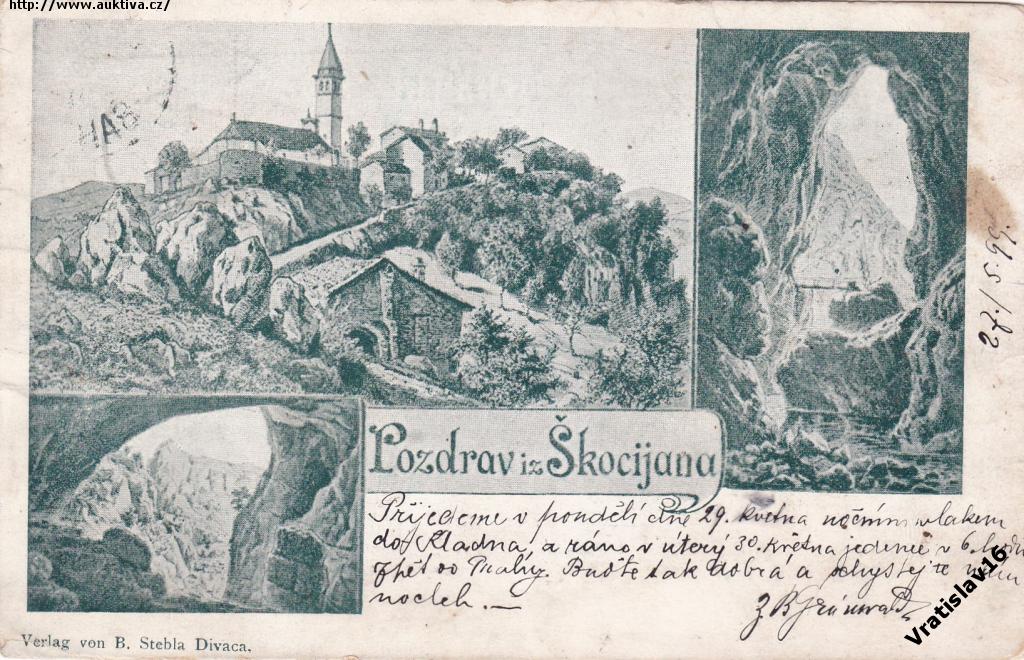 http://www.auktiva.cz/
27./5.99.
Pozdrav iz Škocijana
Přijedeme v pondělí dne 29. května nočním vlakem
do Kladna, a ráno v úterý 30. května jedeme v 6. hodin
zpět do . Buďte tak dobrá a uchystejte nám
nocleh. —
Verlag von B. Stebla Divaca.
Vratislav16